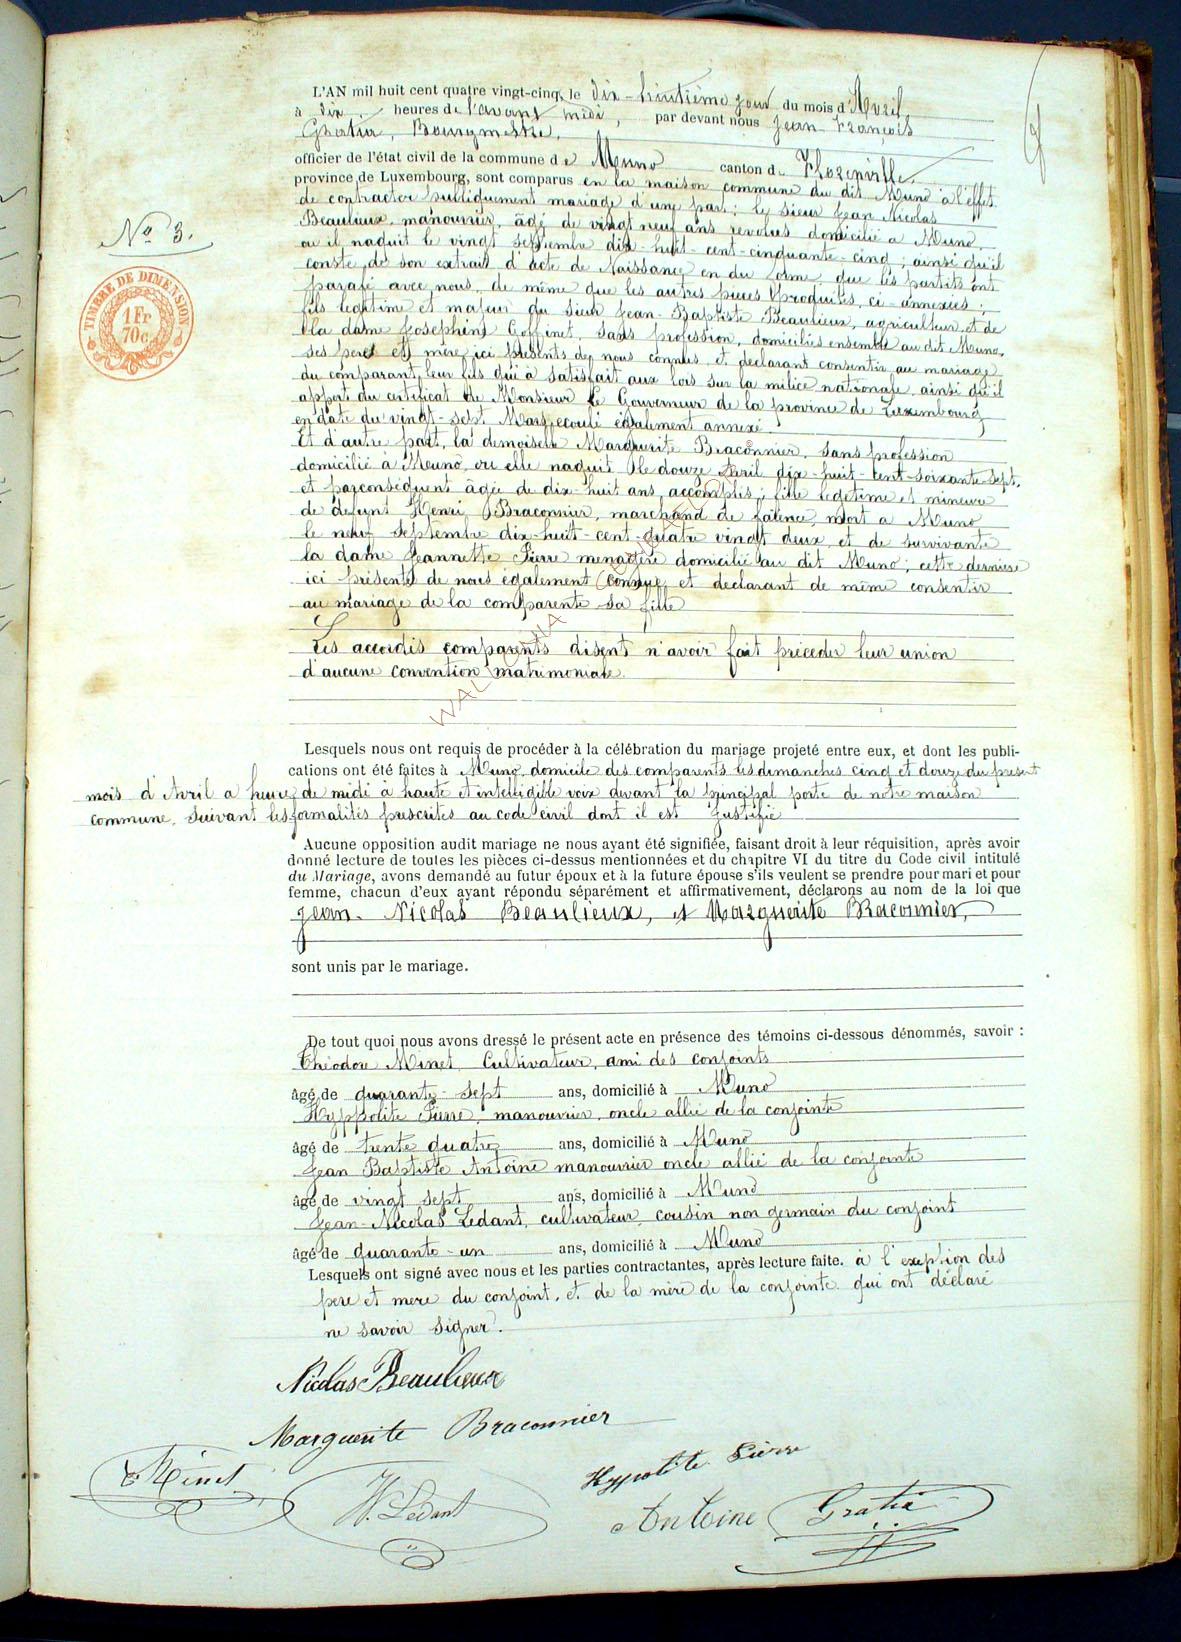 L'AN mil huit cent quatre vingt-cinq, le dix-huitième jour du mois d'Avril
à dix heures de l'avant midi, par devant nous Jean François
Gratia, Bourgmestre,
officier de l'état civil de la commune de Muno canton de Florenville,
province de Luxembourg, sont comparus en la maison commune du dit Muno à l'effet
de contracter publiquement mariage d'une part: le sieur Jean Nicolas
Beaulieux, manouvrier, âgé de vingt neuf ans revolus domicilié a Muno,
ou il naquit le vingt septembre dix-huit-cent-cinquante-cinq; ainsi qu'il
conste de son extrait d'acte de Naissance en du forme que les parties ont
parafé avec nous, de même que les autres pieces produites, ci-annexées;
fils legitime et majeur du sieur Jean-Baptiste Beaulieux, agriculteur, et de
la dame Josephine Goffinet, sans profession, domiciliés ensemble au dit Muno,
ses pere et mère ici presents de nous connus, et declarant consentir au mariage
du comparant, leur fils qui à satisfait aux lois sur la milice nationale, ainsi qu'il
appert du certificat de Monsieur le Gouverneur de la province de Luxembourg
en date du vingt-sept Mars ecoulé également annexé.
Et d'autre part, la demoiselle Marguerite Braconnier, sans profession
domicilié à Muno, ou elle naquit le douze Avril dix-huit-cent-soixante-sept,
et parconséquent âgée de dix-huit ans accomplis; fille legetime et mineure
de defunt Henri Braconnier, marchand de faience, mort a Muno
le neuf septembre dix-huit-cent-quatre vingt deux, et de survivante
la dame Jeannette Pierre menagère domicilié au dit Muno; cette derniere
ici présente de nous également connue, et declarant de même consentir
au mariage de la comparente sa fille
Les accordés comparents disent n'avoir fait préceder leur union
d'aucune convention matrimoniale.
Lesquels nous ont requis de procéder à la célébration du mariage projeté entre eux, et dont les publi-
cations ont été faites à Muno, domicile des comparents les dimanches cinq et douze du present
mois d'Avril a heure de midi à haute et intelligible voix devant la principal porte de notre maison
commune, suivant les formalités prescrites au code civil dont il est justifié
Aucune opposition audit mariage ne nous ayant été signifiée, faisant droit à leur réquisition, après avoir
donné lecture de toutes les pièces ci-dessus mentionnées et du chapitre VI du titre du Code civil intitulé
du Mariage, avons demandé au futur époux et à la future épouse s'ils veulent se prendre pour mari et pour
femme, chacun d'eux ayant répondu séparément et affirmativement, déclarons au nom de la loi que
Jean-Nicolas Beaulieux, et Marguerite Braconnier,
sont unis par le mariage.
De tout quoi nous avons dressé le présent acte en présence des témoins ci-dessous dénommés, savoir :
Théodore Minet, Cultivateur, ami des conjoints
âgé de quarante-sept ans, domicilié à Muno
Hyppolite Pierre, manouvrier, oncle allié de la conjointe
âgé de trente quatre ans, domicilié à Muno
Jean Baptiste Antoine manouvrier oncle allié de la conjointe
âgé de vingt sept ans, domicilié à Muno
Jean-Nicolas Ledant, cultivateur, cousin non germain du conjoint
âgé de quarante-un ans, domicilié à Muno
Lesquels ont signé avec nous et les parties contractantes, après lecture faite. à l'exeption des
pere et mere du conjoint, et de la mère de la conjointe qui ont déclaré
ne savoir signer.
Nicolas Beaulieux
Marguerite Braconnier
Minet
Ledant
Hyppolite Pierre
Antoine
Gratia
No 3.
TIMBRE DE DIMENSION
1 Fr
70c.